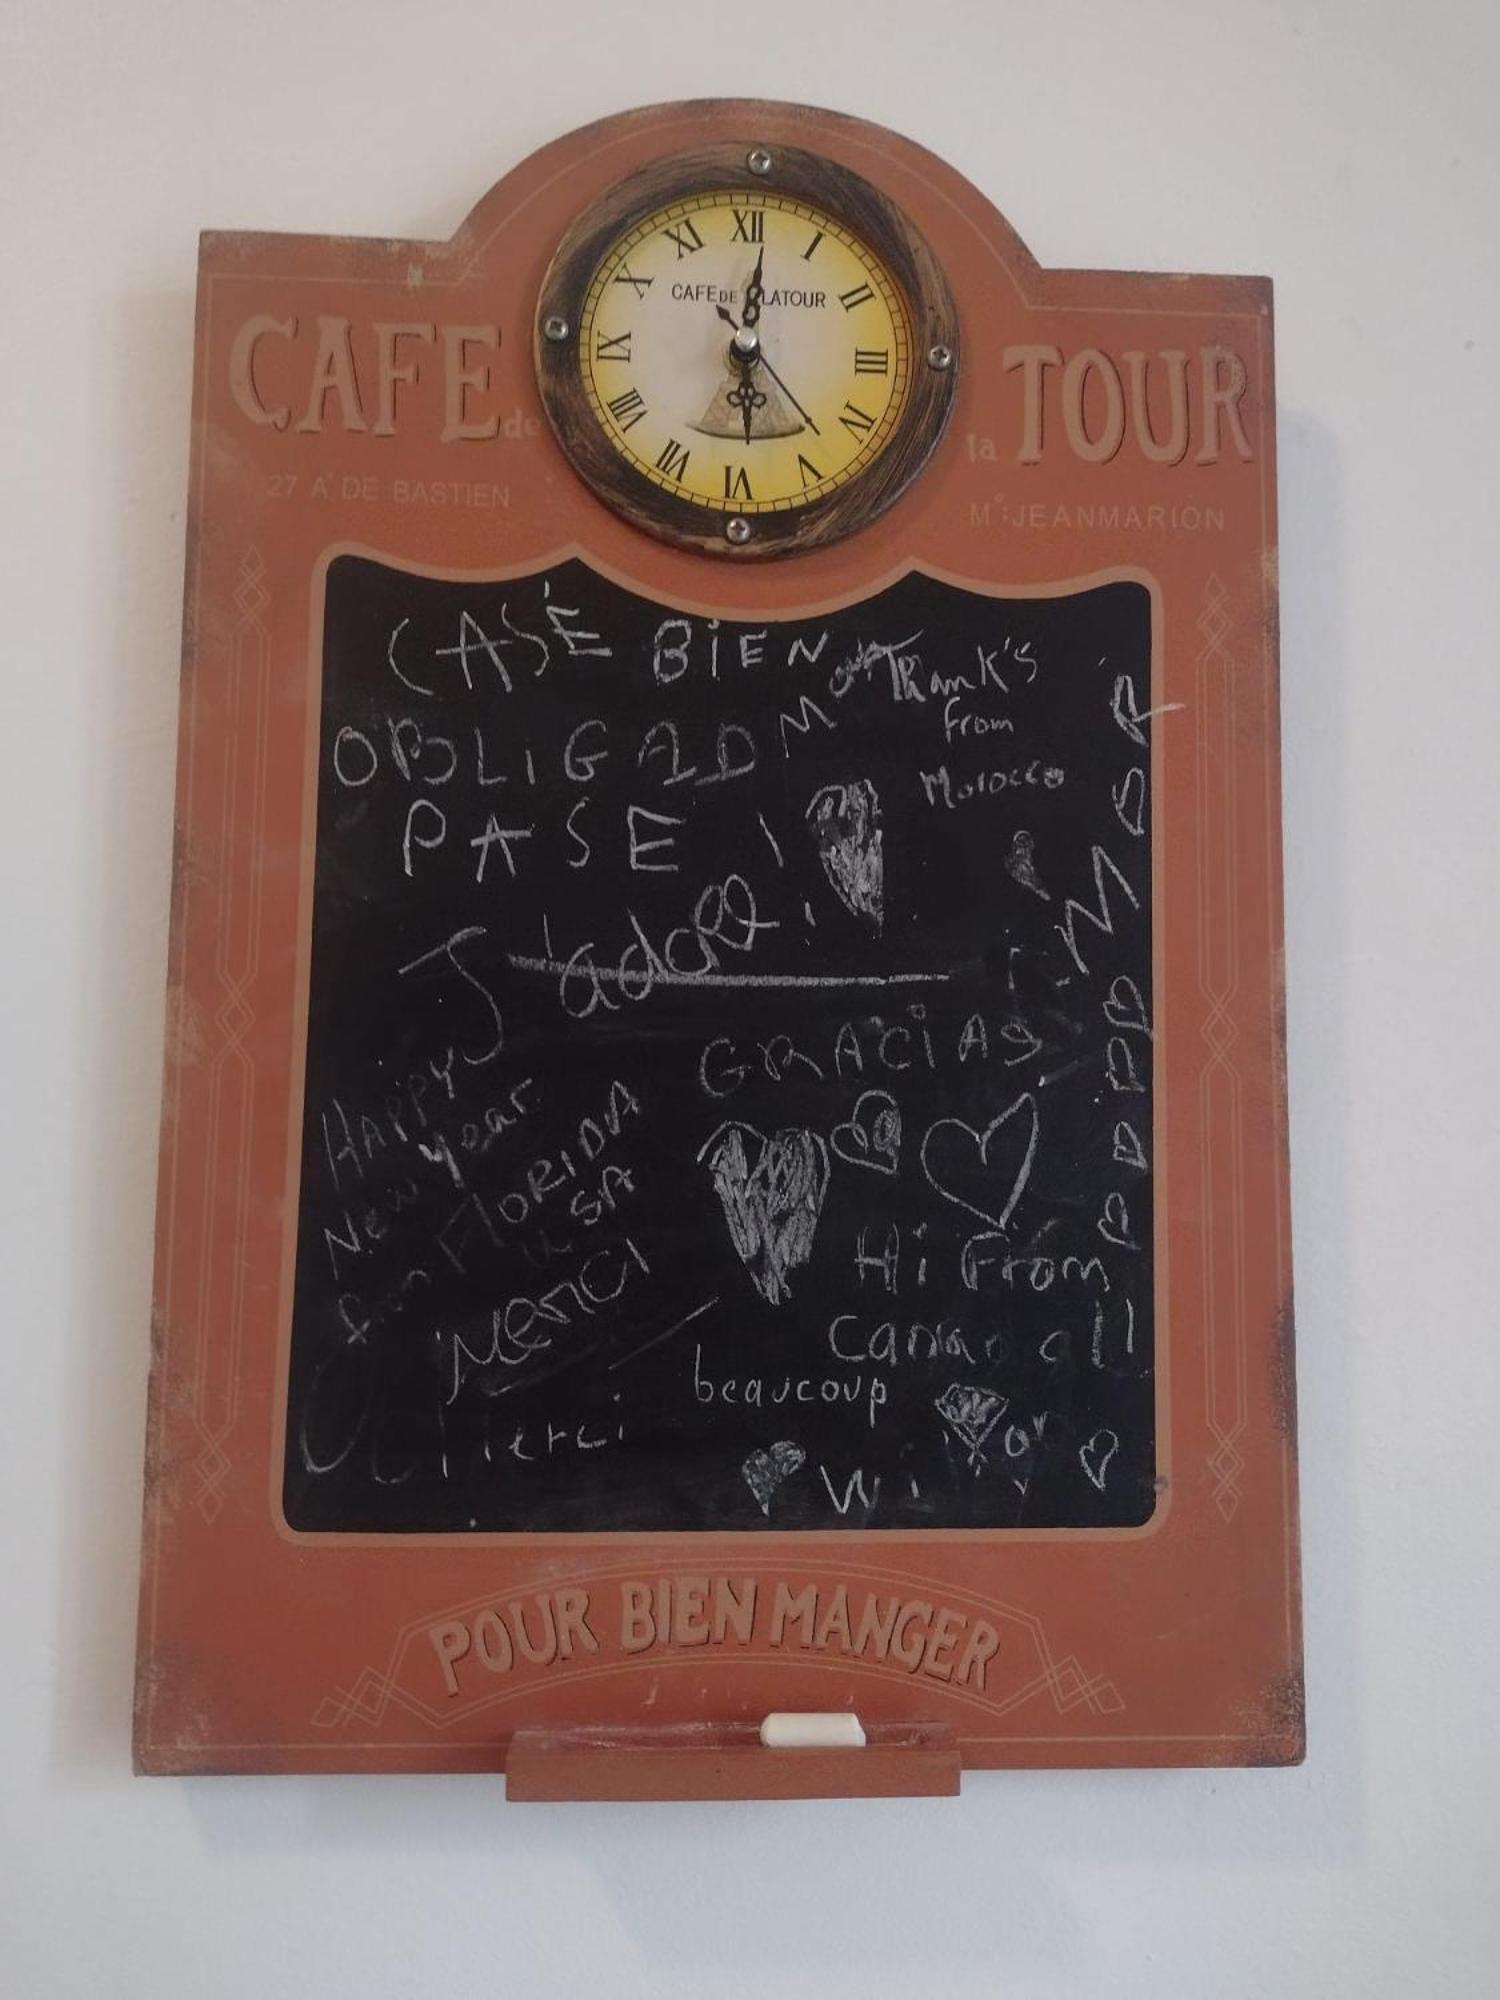 XII
I
II
III
IV
V
VI
VII
VIII
IX
X
XI
CAFE DE LATOUR
CAFE de la TOUR
27 A DE BASTIEN
M°:JEANMARION
CASÉ BiEN
Thank's
from
Morocco
OBLiGADO
PASE !
J'adore !
GRACiAS
Happy
New year
from FLORIDA
USA
Merci
Hi From
beaucoup
POUR BIEN MANGER